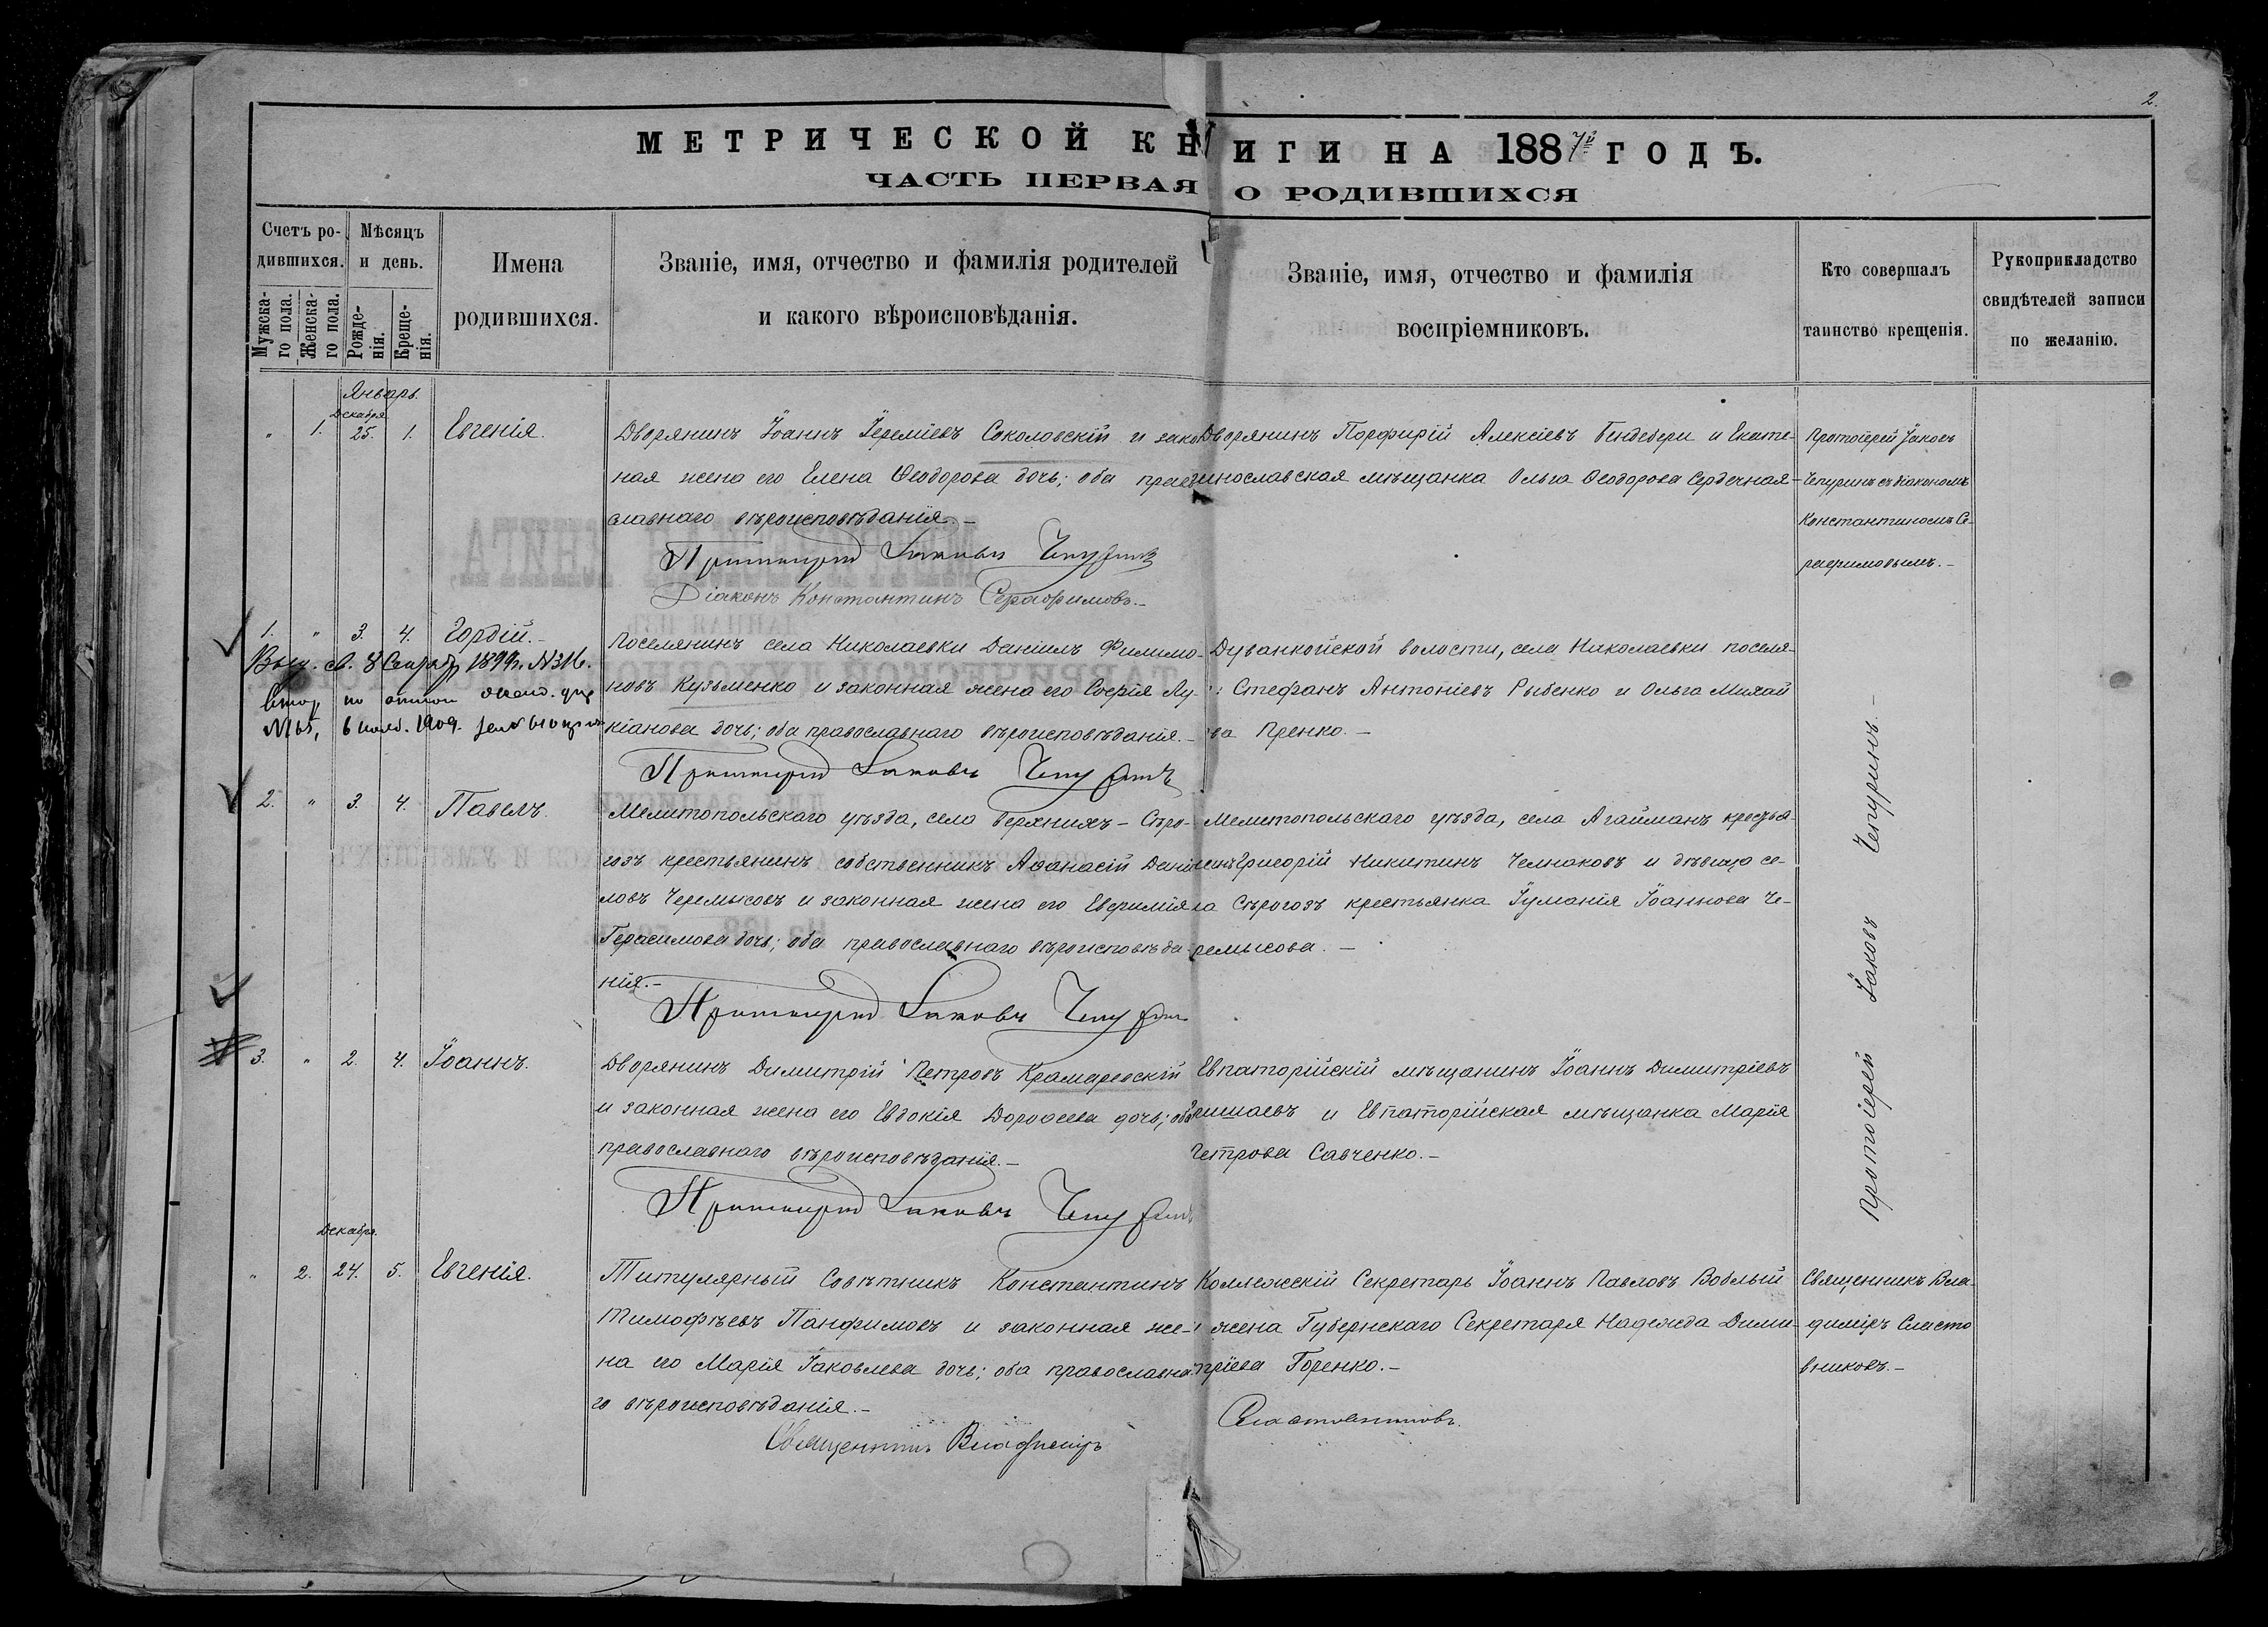 2.
МЕТРИЧЕСКОЙ КНИГИ НА 1887й ГОДЪ.
ЧАСТЬ ПЕРВАЯ О РОДИВШИХСЯ
Счетъ родившихся.
Мужскаго пола.
Женскаго пола.
Мѣсяцъ и день.
Рожденія.
Крещенія.
Имена
родившихся.
Званіе, имя, отчество и фамилія родителей
и какого вѣроисповѣданія.
Званіе, имя, отчество и фамилія
воспріемниковъ.
Кто совершалъ
таинство крещенія.
Рукоприкладство
свидѣтелей записи
по желанію.
Январь.
Декабря
" 1. 25. 1. Евгенія.
Дворянинъ Іоаннъ Іереміевъ Соколовскій и закон
ная жена его Елена Ѳеодорова дочь; оба право
славнаго вѣроисповѣданія.-
Протоіерей Іаковъ Чепуринъ
Діаконъ Константинъ Серафимовъ.-
Дворянинъ Порфирій Алексіевъ Бендебери и Екате-
ринославская мѣщанка Ольга Ѳеодорова Сердечная-
Протоіерей Іаковъ
Чепуринъ съ діакономъ
Константиномъ Се-
рафимовымъ.-
1. " 3. 4. Гордій.-
8 1899г. № 316.
№ 65, 1909.
Поселянинъ села Николаевки Даніилъ Филимо-
новъ Кузьменко и законная жена его Софія Лу-
кіанова дочь; оба православнаго вѣроисповѣданія.-
Протоіерей Іаковъ Чепуринъ
Дуванкойской волости, села Николаевки поселя-
Стефанъ Антоніевъ Рыбенко и Ольга Михай
ва Пренко.-
2. " 3. 4. Павелъ.
Мелитопольскаго уѣзда, села Верхнихъ-Сѣро-
гозъ крестьянинъ собственникъ Аѳанасій Дани
ловъ Черемисовъ и законная жена его Евфимія
Герасимова дочь; оба православнаго вѣроисповѣда-
нія.-
Протоіерей Іаковъ Чепурин
Мелитопольскаго уѣзда, села Агайманъ крестья-
нинъ Григорій Никитинъ Челнаковъ и дѣвица се-
ла Сѣрогозъ крестьянка Іуманія Іоаннова Че-
ремисова.-
3. " 2. 4. Іоаннъ.
Дворянинъ Димитрій Петровъ Крамаревскій
и законная жена его Евдокія Дороѳеева дочь; оба
православнаго вѣроисповѣданія.-
Протоіерей Іаковъ Чепуринъ
Евпаторійскій мѣщанинъ Іоаннъ Димитріевъ
и Евпаторійская мѣщанка Марія
Петрова Савченко.-
Протоіерей Іаковъ Чепуринъ.-
Декабря.
" 2. 24. 5. Евгенія.
Титулярный Совѣтникъ Константинъ
Тимофѣевъ Панфиловъ и законная же-
на его Марія Іаковлева дочь; оба православна
го вѣроисповѣданія.-
Священникъ Владиміръ
Коллежскій Секретарь Іоаннъ Павловъ Воблый
и жена Губернскаго Секретаря Надежда Дими-
тріева Горенко.-
Сластовниковъ.
Священникъ Вла-
диміръ Сласто
вниковъ.-